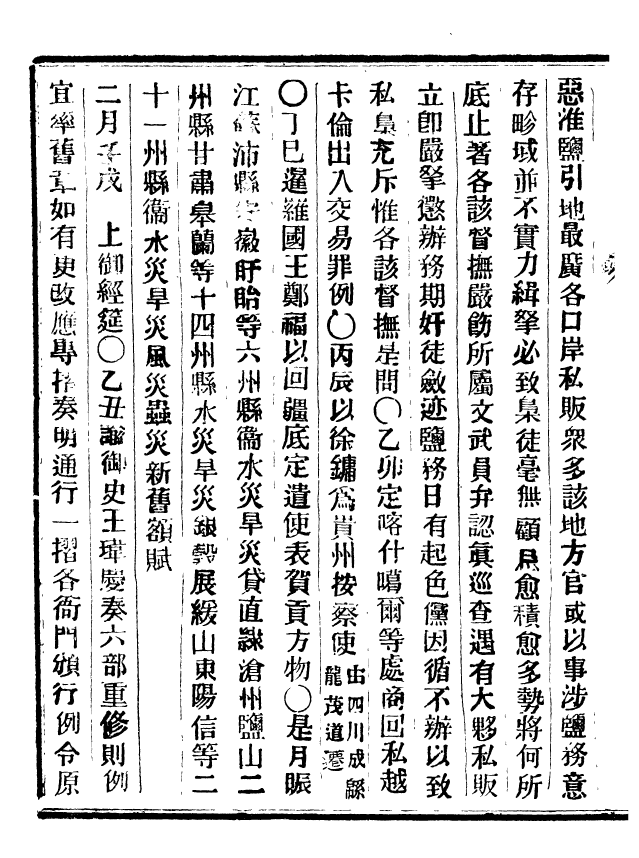 惡淮鹽引地最廣各口岸私販衆多該地方官或以事涉鹽務意
存畛域並不實力緝拏必致梟徒毫無顧忌愈積愈多勢將何所
底止著各該督撫嚴飭所屬文武員弁認眞巡查遇有大夥私販
立卽嚴拏懲辦務期奸徒斂迹鹽務日有起色儻因循不辦以致
私梟充斥惟各該督撫是問〇乙卯定喀什噶爾等處商回私越
卡倫出入交易罪例〇丙辰以徐鏞爲貴州按察使由四川成緜龍茂道遷
〇丁巳暹羅國王鄭福以回疆底定遣使表賀貢方物〇是月賑
江蘇沛縣安徽盱眙等六州縣衞水災旱災貸直隸滄州鹽山二
州縣甘肅皋蘭等十四州縣水災旱災銀穀展緩山東陽信等二
十一州縣衞水災旱災風災蟲災新舊額賦
二月壬戌 上御經筵〇乙丑諭御史王瑋慶奏六部重修則例
宜率舊章如有更改應專摺奏明通行一摺各衙門頒行例令原